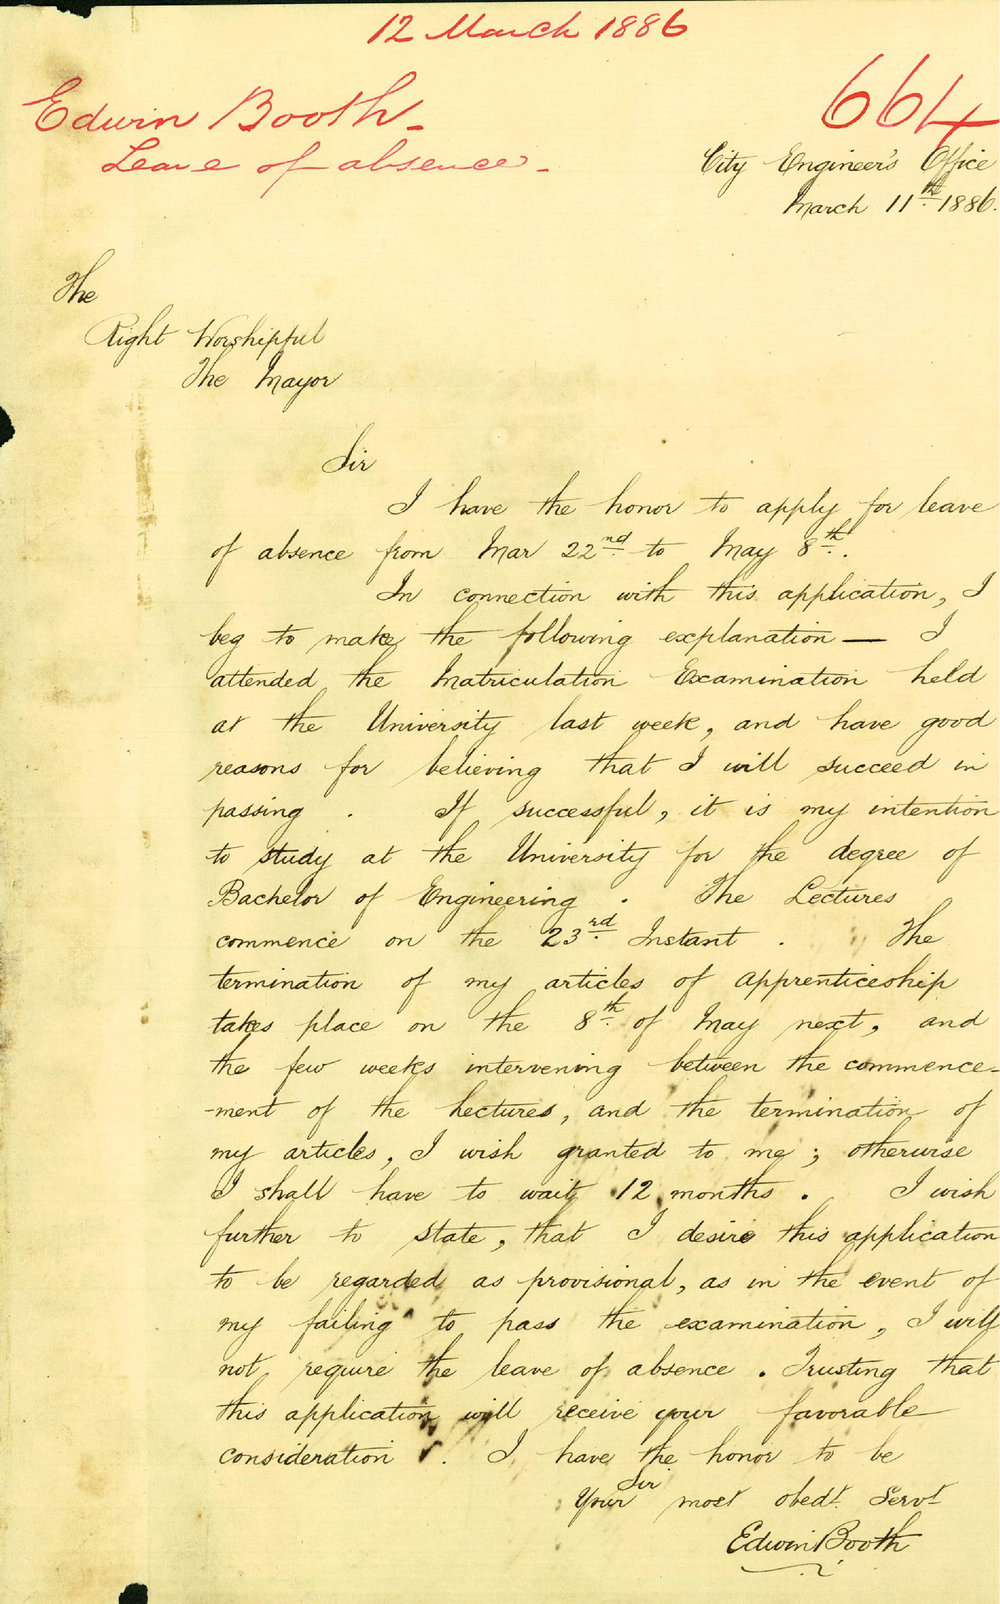 12 March 1886
Edwin Booth
664
Leave of absence
City Engineer's Office
March 11th 1886.
The
Right Worshipful
The Mayor
Sir
I have the honor to apply for leave
of absence from Mar 22nd to May 8th.
In connection with this application, I
beg to make the following explanation — I
attended the Matriculation Examination held
at the University last week, and have good
reasons for believing that I will succeed in
passing. If successful, it is my intention
to study at the University for the degree of
Bachelor of Engineering. The Lectures
commence on the 23rd Instant. The
termination of my articles of apprenticeship
takes place on the 8th of May next, and
the few weeks intervening between the commence-
-ment of the lectures, and the termination of
my articles, I wish granted to me; otherwise
I shall have to wait 12 months. I wish
further to state, that I desire this application
to be regarded as provisional, as in the event of
my failing to pass the examination, I will
not require the leave of absence. Trusting that
this application will receive your favorable
consideration. I have the honor to be
Sir
Your most obedt. Servt
Edwin Booth